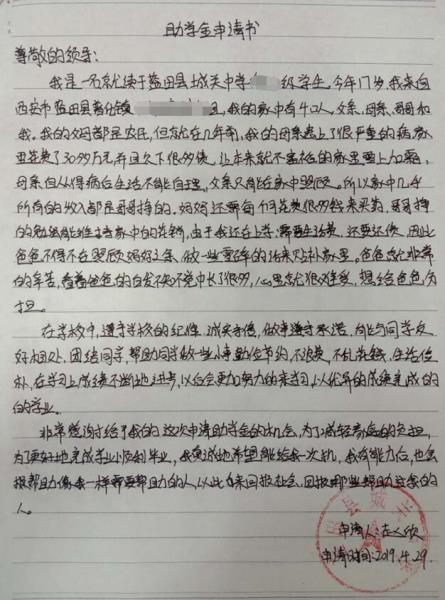 助学金申请书
尊敬的领导:
我是一名就读于蓝田县城关中学 级学生,今年17岁,我来自
西安市蓝田县 镇 我的家中有4口人,父亲,母亲,哥哥和
我。我的父母都是农民,但就在几年前,我的母亲患上了很严重的病,家
里花费了30好万元并且欠下很多债,让本来就不富裕的家里雪上加霜,
母亲但从得病后生活不能自理,父亲只能在家中照顾。所以家中几乎
所有的收入都是哥哥挣的。妈妈还要每 花费很多钱来买药,哥哥挣
的勉强能维持着家中的花销,由于我还在上学,需要生活费,还要还债,因此
爸爸不得不在照顾妈妈之余,做一些零碎的活来贴补家里。爸爸总是非常
的辛苦,看着爸爸的白发不知不觉中长了很多,心里就很难受,想给爸爸分
担。
在学校中,遵守学校的纪律,诚实守信,做事遵守承诺,能与同学友
好相处,团结同学,帮助同学做一些小事,勤俭节约,不浪费,不乱花钱,生活俭
朴,在学习上成绩不断地进步,以后会更加努力的来学习,以优异的成绩完成我
的学业。
非常感谢给了我的这次申请助学金的机会,为了减轻家庭的负担,
为了更好地完成学业,顺利毕业,我真诚地希望能给我一次机,我有能力后,也会
报帮助像我一样需要帮助的人,以此为来回报社会,回报那些帮助过我的
人。
申请人:
申请时间:2019.4.29